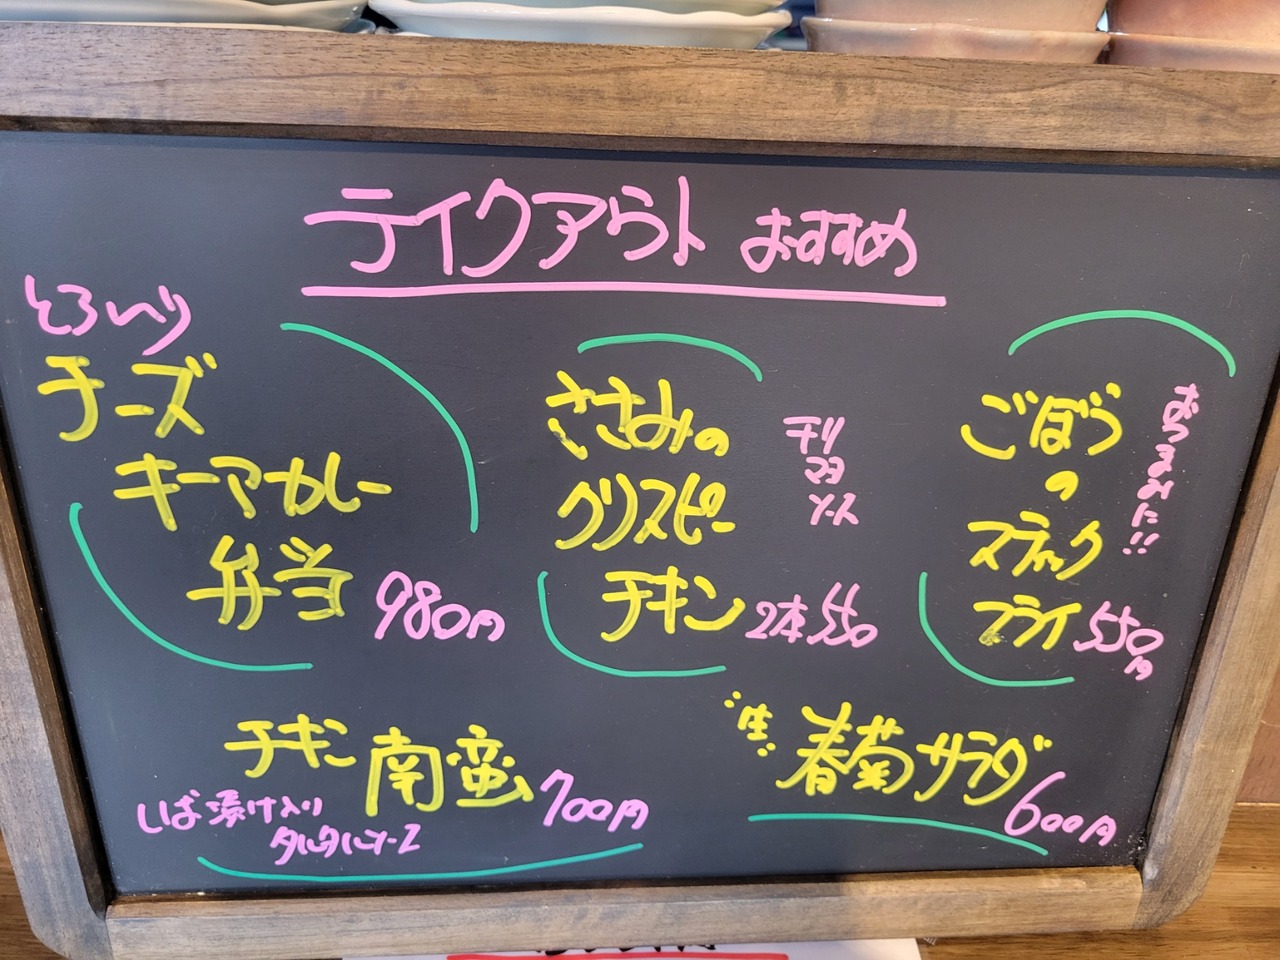 テイクアウト おすすめ
とろ〜り
チーズ
キーマカレー
弁当 980円
ささみの
クリスピー
チキン 2本 550
チリ
マヨ
ソース
ごぼう
の
スティック
フライ 550円
おつまみに!!
チキン南蛮 700円
しば漬け入り
タルタルソース
生 春菊サラダ 600円